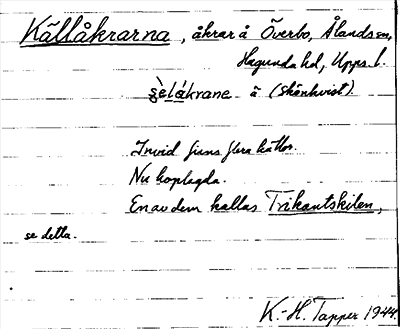 Källåkrarna, åkrar å Överbo, Ålands sn,
Hagunda hd, Upps. l.
å (Skönkvist).
Invid finns flera källor.
Nu hoplagda.
En av dem kallas Trikantskilen,
se detta.
K.-H. Tapper 1944.